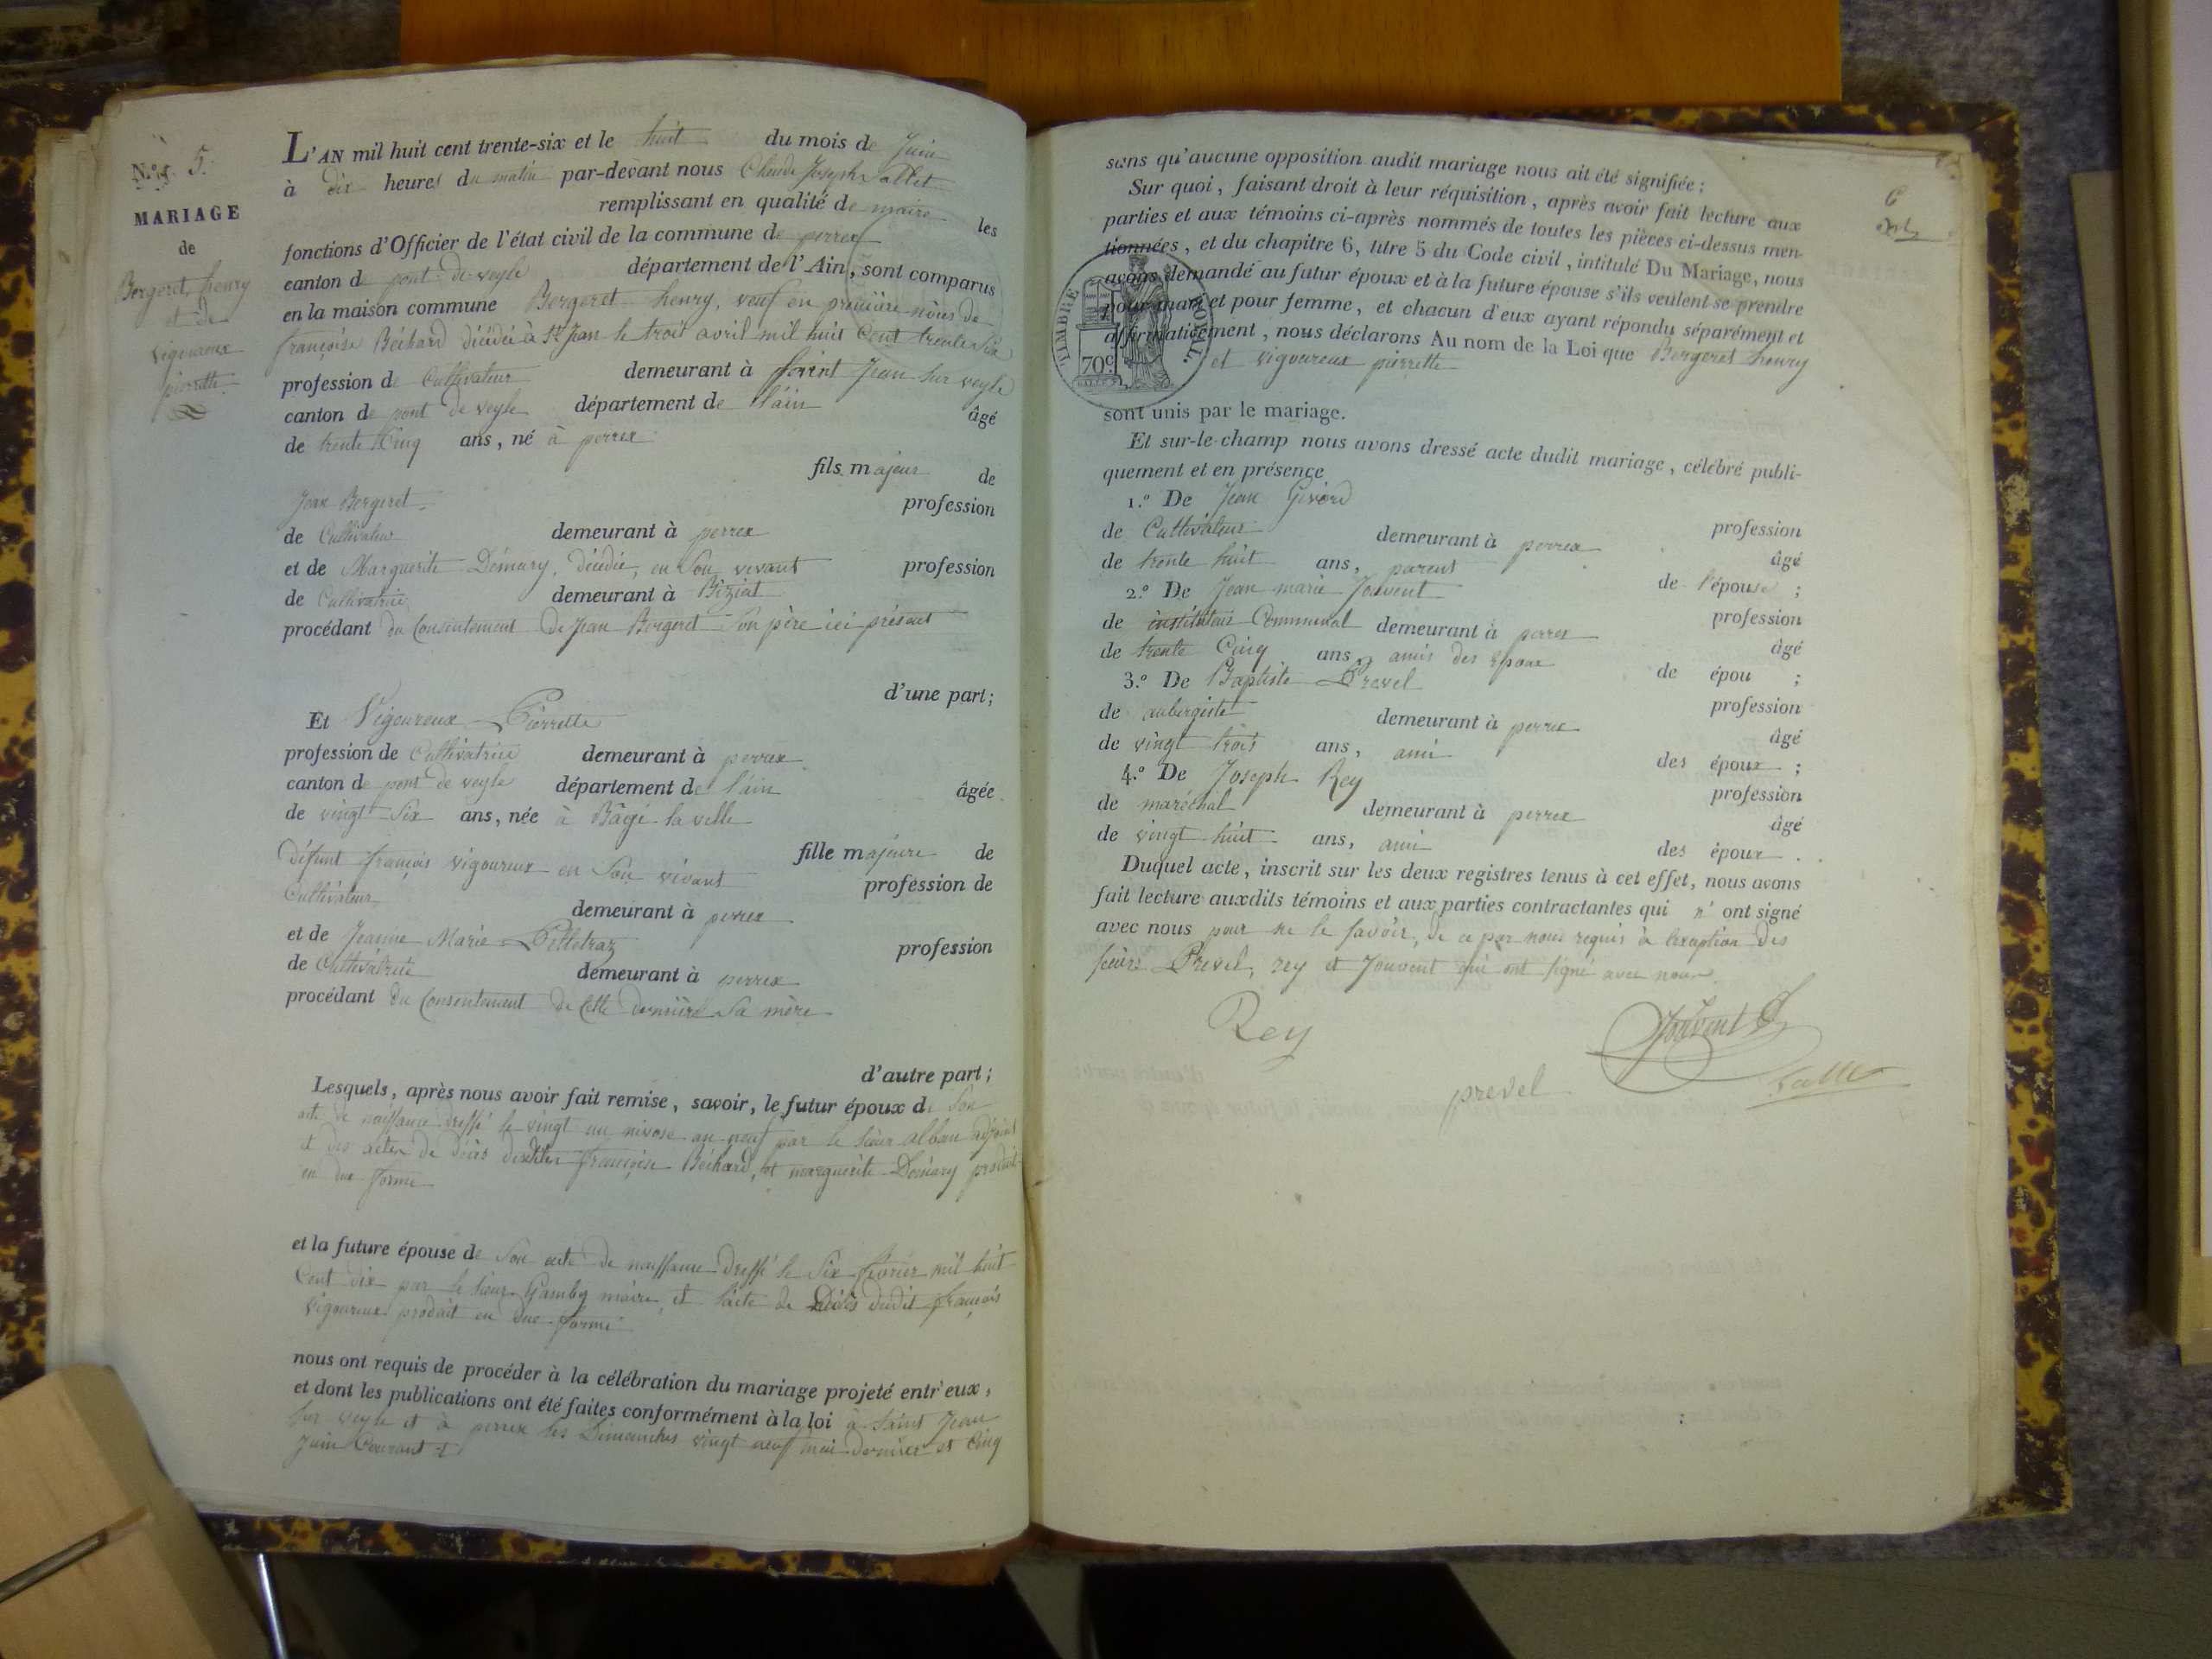 N.º 5.
MARIAGE
de
Bergeret henry
et de
vigoureux
pierrette
L'AN mil huit cent trente-six et le huit du mois de Juin
à dix heures du matin par-devant nous Claude Joseph
remplissant en qualité de maire les
fonctions d'Officier de l'état civil de la commune de perrex
canton de pont de veyle département de l'Ain, sont comparus
en la maison commune Bergeret henry, veuf en première nôces de
françoise Béchard décédée à St Jean le trois avril mil huit Cent trente six
profession de Cultivateur demeurant à saint Jean sur veyle
canton de pont de veyle département de l'ain âgé
de trente Cinq ans, né à perrex
fils majeur de
Jean Bergeret
profession
de Cultivateur demeurant à perrex
et de Marguerite Démary, décédée, en son vivant profession
de Cultivatrice demeurant à Biziat
procédant du Consentement de Jean Bergeret son père ici présent
d'une part;
Et Vigoureux Pierrette
profession de Cultivatrice demeurant à perrex
canton de pont de veyle département de l'ain âgée
de vingt Six ans, née à Bâgé la ville
fille majeure de
défunt françois vigoureux en son vivant profession de
Cultivateur demeurant à perrex
et de Jeanne Marie Pelletraz profession
de Cultivatrice demeurant à perrex
procédant du Consentement de Cette dernière sa mère
d'autre part;
Lesquels, après nous avoir fait remise, savoir, le futur époux de son
acte de naissance dressé le vingt un nivose an neuf par le sieur alban adjoint
et des actes de décès desdites françoise Béchard, et marguerite Démary produit
en due forme
et la future épouse de son acte de naissance dressé le Six février mil huit
Cent dix par le sieur Gamby maire, et l'acte de Décès dudit françois
vigoureux produit en due forme
nous ont requis de procéder à la célébration du mariage projeté entr'eux,
et dont les publications ont été faites conformément à la loi à saint Jean
sur veyle et à perrex les Dimanches vingt neuf mai dernier et Cinq
Juin Courant
sans qu'aucune opposition audit mariage nous ait été signifiée;
Sur quoi, faisant droit à leur réquisition, après avoir fait lecture aux
parties et aux témoins ci-après nommés de toutes les pièces ci-dessus men-
tionnées, et du chapitre 6, titre 5 du Code civil, intitulé Du Mariage, nous
avons demandé au futur époux et à la future épouse s'ils veulent se prendre
pour mari et pour femme, et chacun d'eux ayant répondu séparément et
affirmativement, nous déclarons Au nom de la Loi que Bergeret henry
et vigoureux pierrette
TIMBRE ROYAL.
70c
sont unis par le mariage.
Et sur-le-champ nous avons dressé acte dudit mariage, célébré publi-
quement et en présence
1.º De Jean Givord
profession
de Cultivateur demeurant à perrex âgé
de trente huit ans, parent de l'épouse;
2.º De Jean marie Jouvent profession
de instituteur Communal demeurant à perrex âgé
de trente Cinq ans, amis des époux de épou ;
3.º De Baptiste Prevel profession
de aubergiste demeurant à perrex âgé
de vingt trois ans, ami des époux;
4.º De Joseph Rey profession
de maréchal demeurant à perrex âgé
de vingt huit ans, ami des époux.
Duquel acte, inscrit sur les deux registres tenus à cet effet, nous avons
fait lecture auxdits témoins et aux parties contractantes qui n'ont signé
avec nous pour ne le savoir, de ce par nous requis à l'exception des
sieurs Prevel, rey et Jouvent qui ont signé avec nous.
Rey
Jouvent
prevel